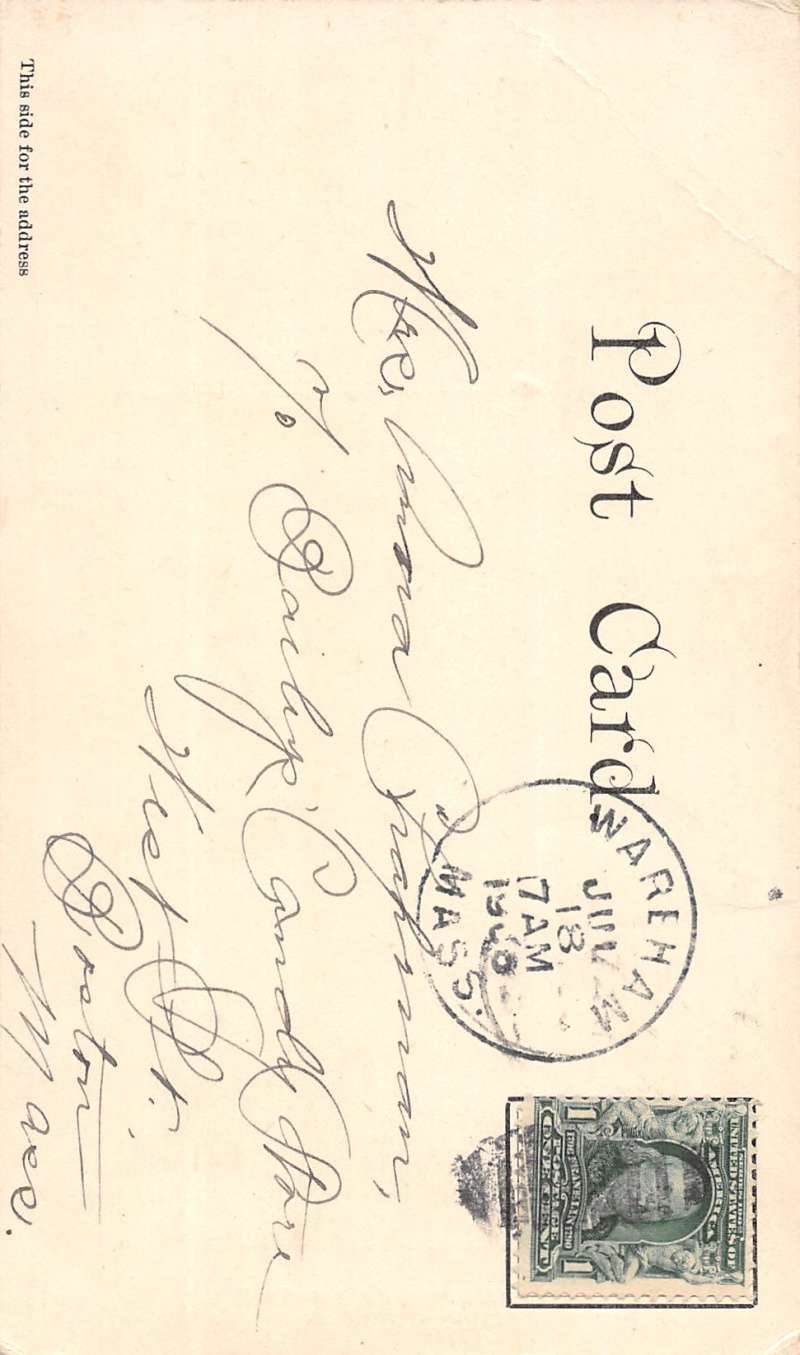 Post Card
WAREHAM
JUL
18
7 AM
MASS.
UNITED STATES OF
AMERICA
1 1
POSTAGE
ONE CENT
Anna Chapman,
c/o Bailey's Candy Store
West St.
Boston
Mass.
This side for the address